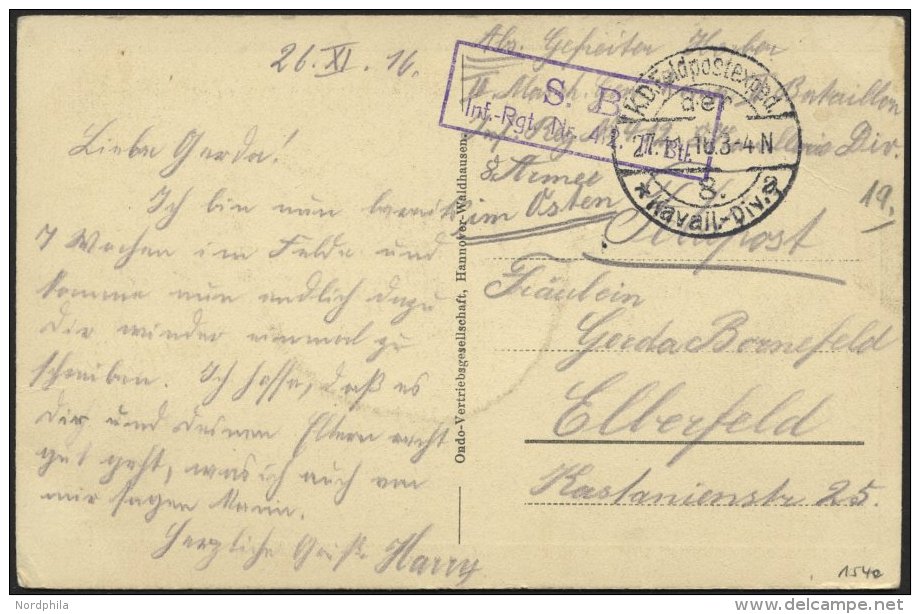 26. XI. 16.
Liebe Gerda!
Ich bin nun bereits
7 Wochen im Felde und
komme nun endlich dazu
Dir wieder einmal zu
schreiben. Ich hoffe, daß es
Dir und deinen Eltern recht
gut geht, was ich auch von
mir sagen kann.
Herzliche Grüße Harry
Ondo-Vertriebsgesellschaft, Hannover-Waldhausen.
Abs. Gefreiter
Bataillon
Div.
8. Armee
im Osten
S. B.
Inf.-Rgt. Nr. 42.
K.D. Feldpostexped.
der
3-4 N
8.
* Kavall.-Div. a
Feldpost
Fräulein
Gerda Bornefeld
Elberfeld
Kastanienstr 25.
19.
154a
Nordphila
delcampe.net